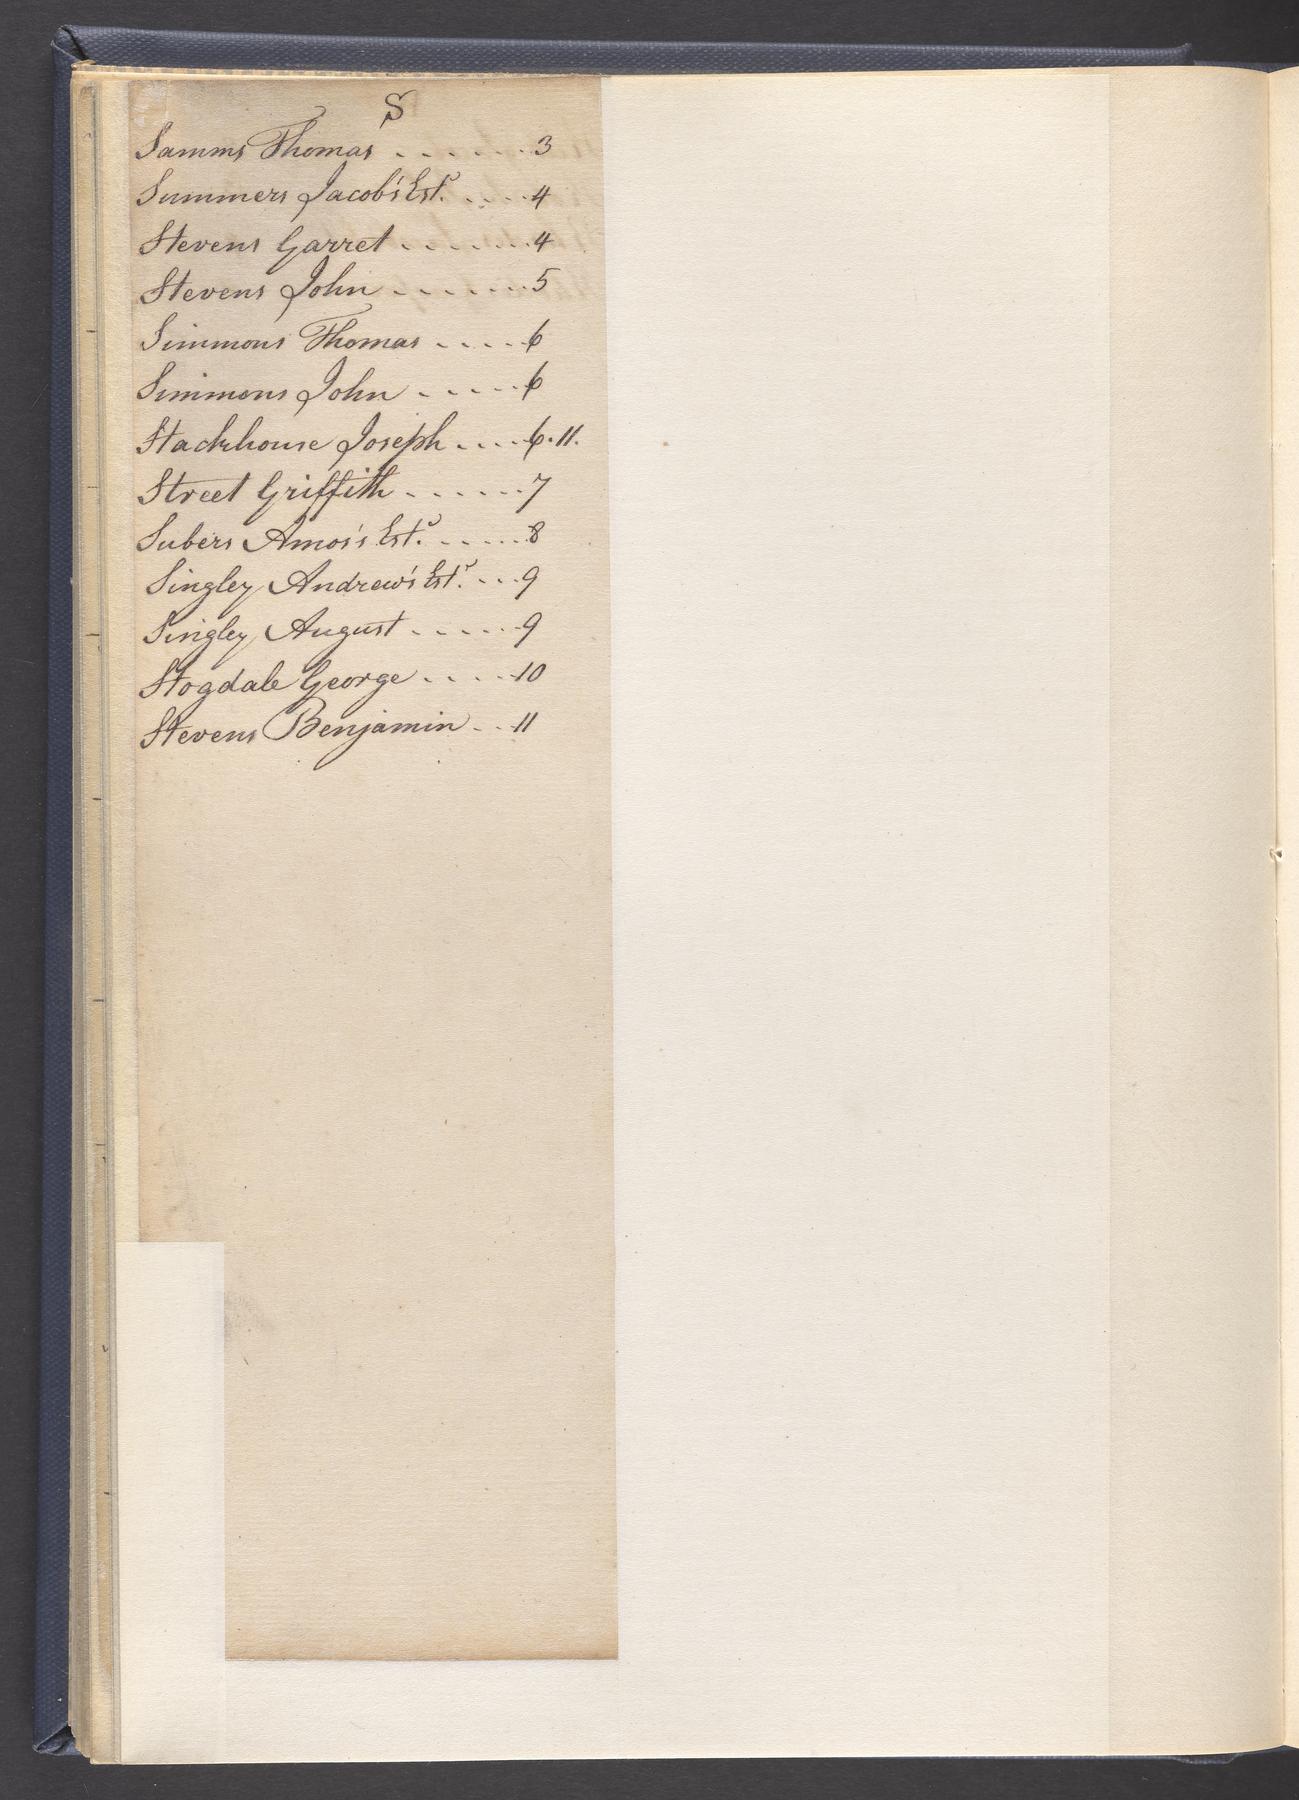 S
Samms Thomas . . . . . . 3
Summers Jacob's Est.r . . . . 4
Stevens Garret . . . . . . . 4
Stevens John . . . . . . . 5
Simmons Thomas . . . . 6
Simmons John . . . . . 6
Stackhouse Joseph . . . . 6. 11.
Street Griffith . . . . . . 7
Subers Amos's Est.r . . . . . . 8
Singley Andrew's Est.r . . . 9
Singley August . . . . . 9
Stogdale George . . . . 10
Stevens Benjamin . . . 11